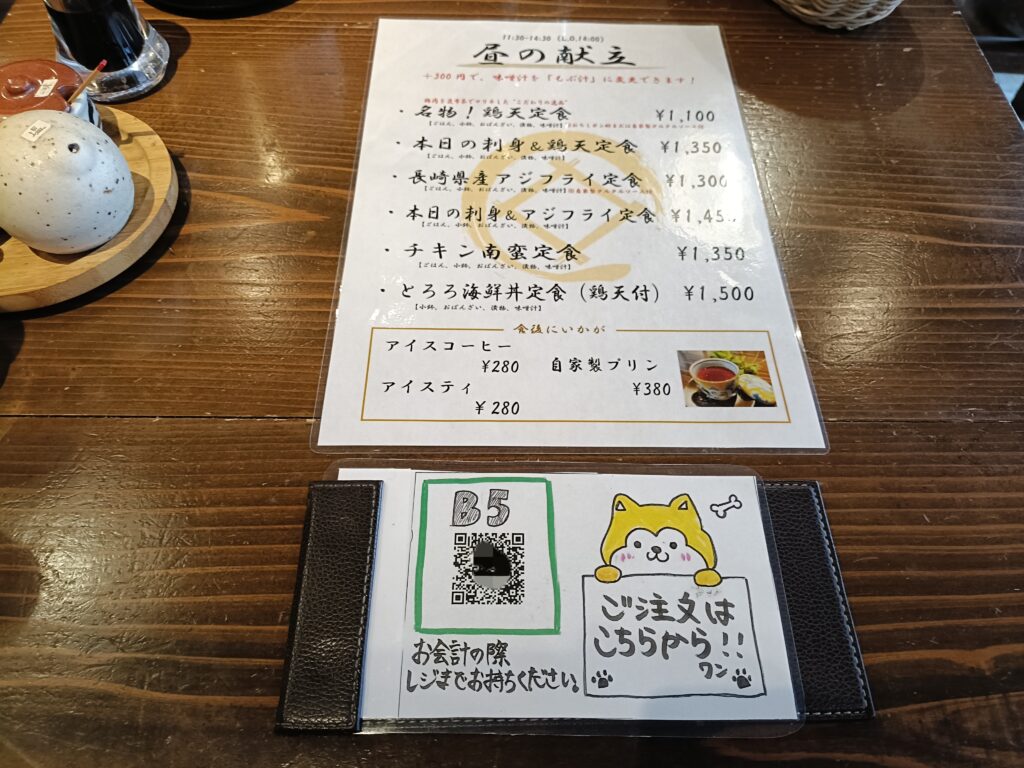 11:30~14:30 (L.O,14:00)
昼の献立
+300円で、味噌汁を「もぶ汁」に変更できます!
・名物!鶏天定食 ¥1,100
【ごはん、小鉢、おばんざい、漬物、味噌汁】
・本日の刺身&鶏天定食 ¥1,350
【ごはん、小鉢、おばんざい、漬物、味噌汁】
・長崎県産アジフライ定食 ¥1,300
【ごはん、小鉢、おばんざい、漬物、味噌汁】
・本日の刺身&アジフライ定食 ¥1,450
【ごはん、小鉢、おばんざい、漬物、味噌汁】
・チキン南蛮定食 ¥1,350
【ごはん、小鉢、おばんざい、漬物、味噌汁】
・とろろ海鮮丼定食(鶏天付) ¥1,500
【小鉢、おばんざい、漬物、味噌汁】
食後にいかが
アイスコーヒー
¥280
アイスティ
¥280
自家製プリン
¥380
B5
お会計の際
レジまでお持ちください。
ご注文は
こちらから!!
ワン